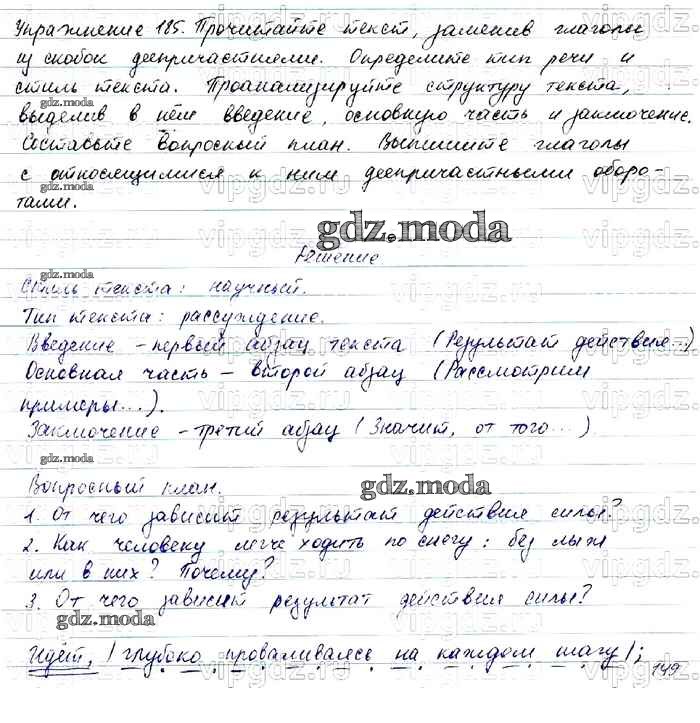 Упражнение 185. Прочитайте текст, заменив глаголы
из скобок деепричастиями. Определите тип речи и
стиль текста. Проанализируйте структуру текста,
gdz.moda
выделив в нём введение, основную часть и заключение.
Составьте вопросный план. Выпишите глаголы
gdz.moda
с относящимися к ним деепричастными оборо-
тами.
gdz.moda
Решение
Стиль текста: научный.
gdz.moda
Тип текста: рассуждение.
Введение - первый абзац текста (Результат действия...)
Основная часть - второй абзац (Рассмотрим
примеры...).
Заключение - третий абзац (Значит, от того...)
gdz.moda
Вопросный план.
gdz.moda
1. От чего зависит результат действия силы?
2. Как человеку легче ходить по снегу: без лыж
или в них? Почему?
3. От чего зависит результат действия силы?
gdz.moda
Идёт, /глубоко проваливаясь на каждом шагу/;
149